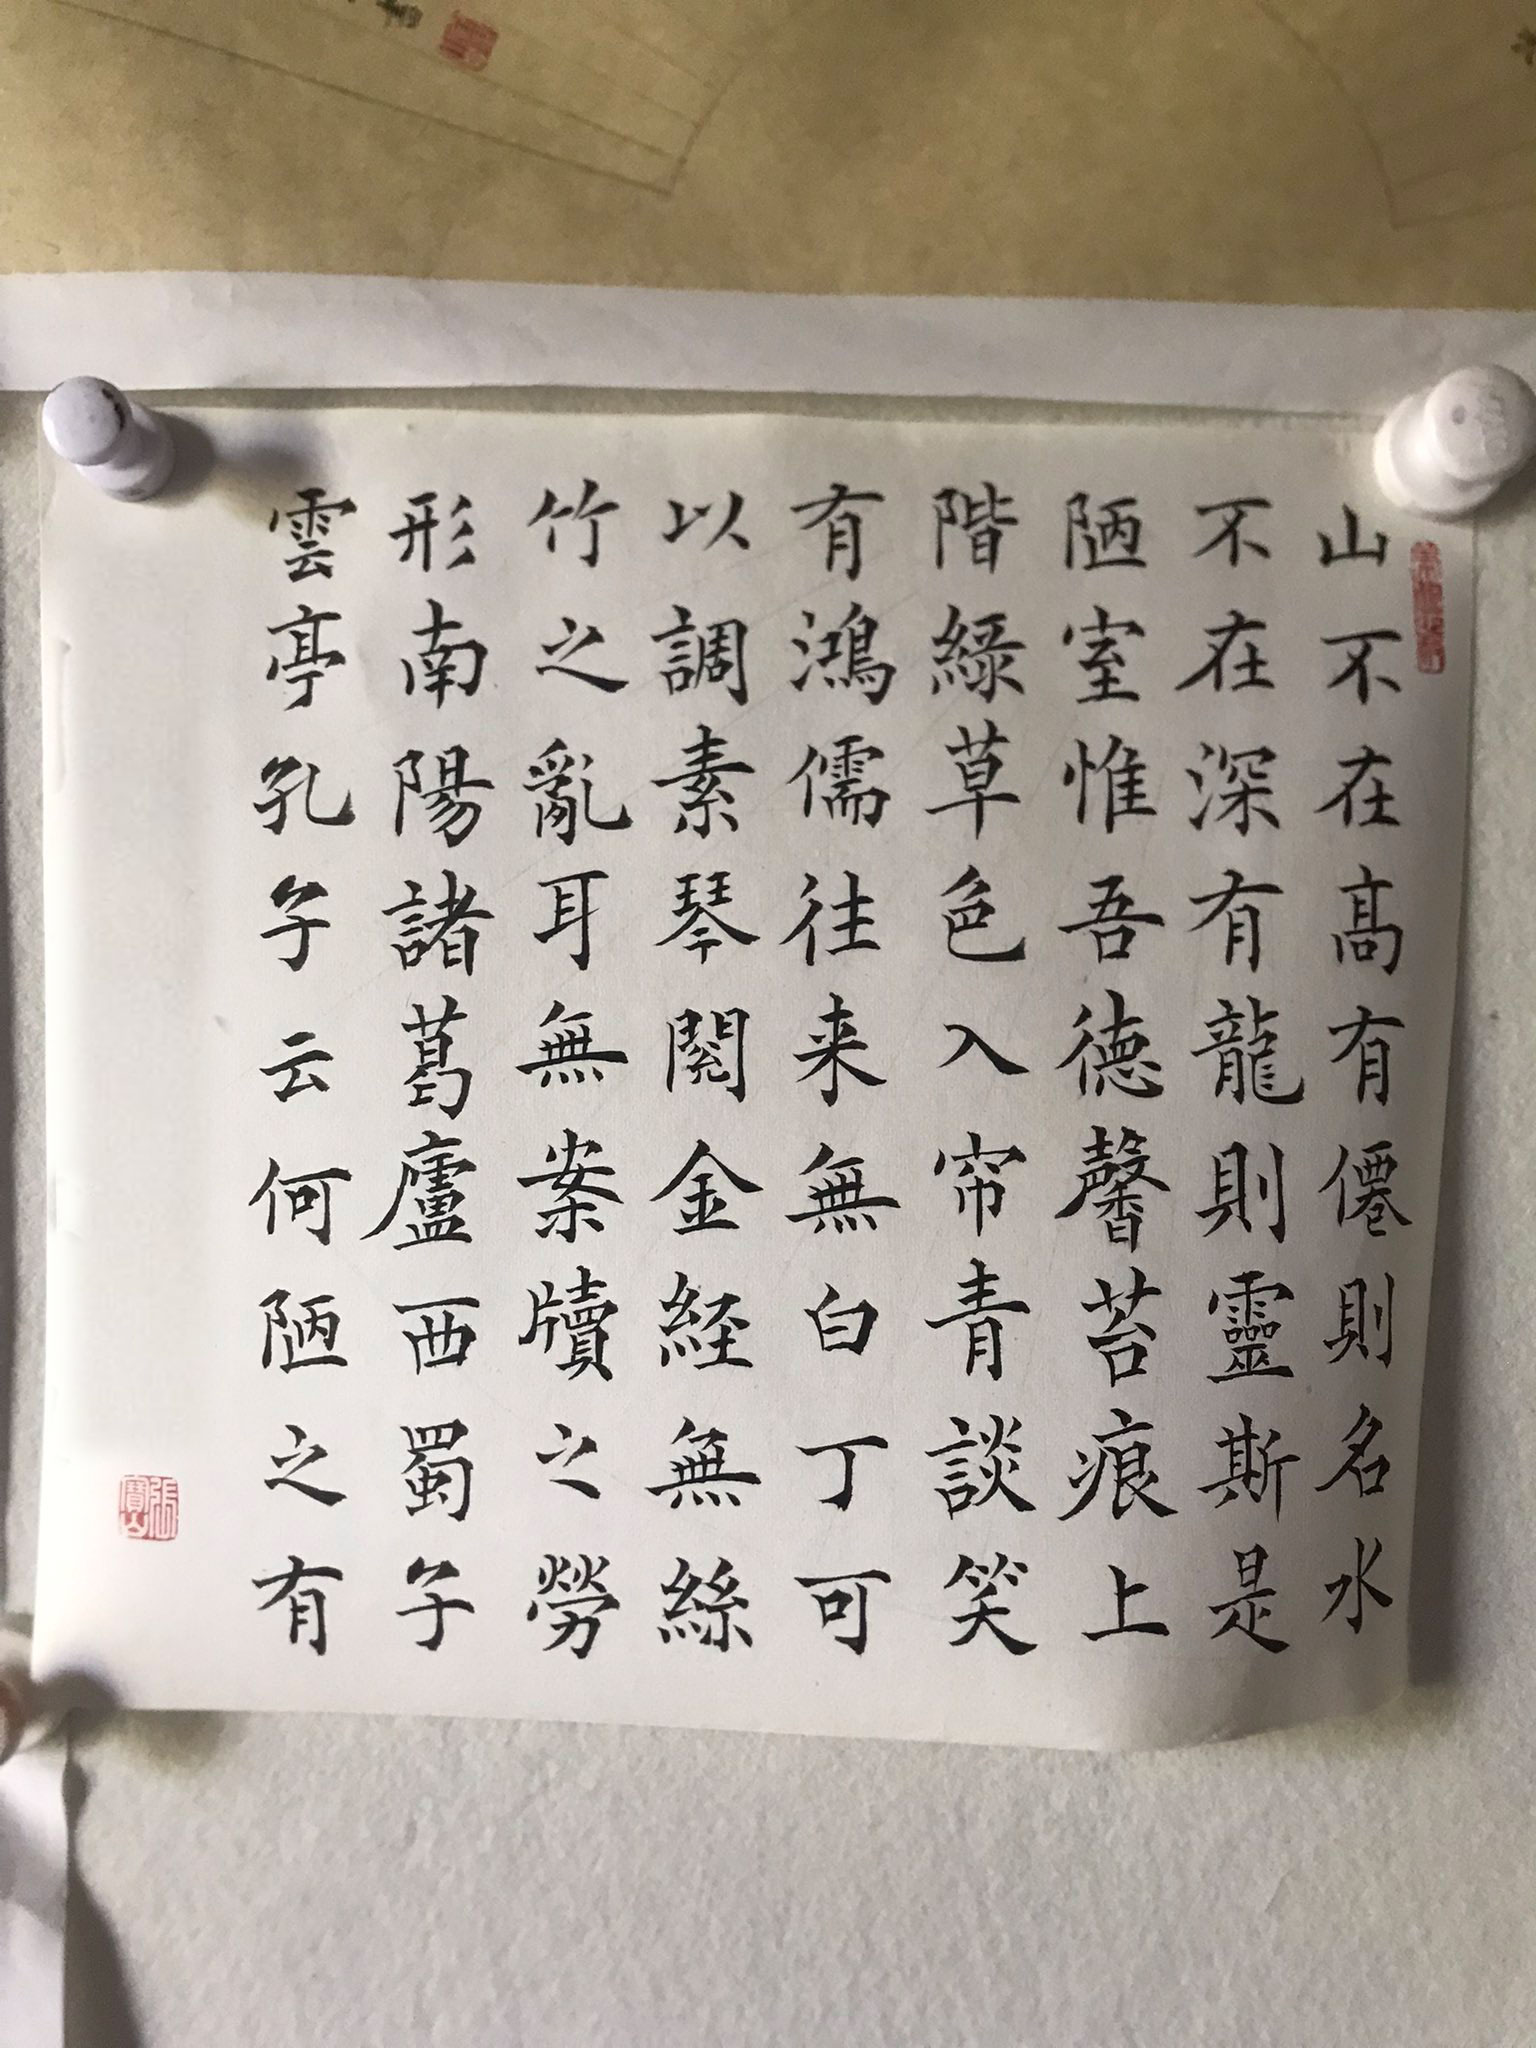 山不在高有僊則名水
不在深有龍則靈斯是
陋室惟吾德馨苔痕上
階綠草色入帘青談笑
有鴻儒往来無白丁可
以調素琴閱金経無絲
竹之亂耳無案牘之勞
形南陽諸葛廬西蜀子
雲亭孔子云何陋之有